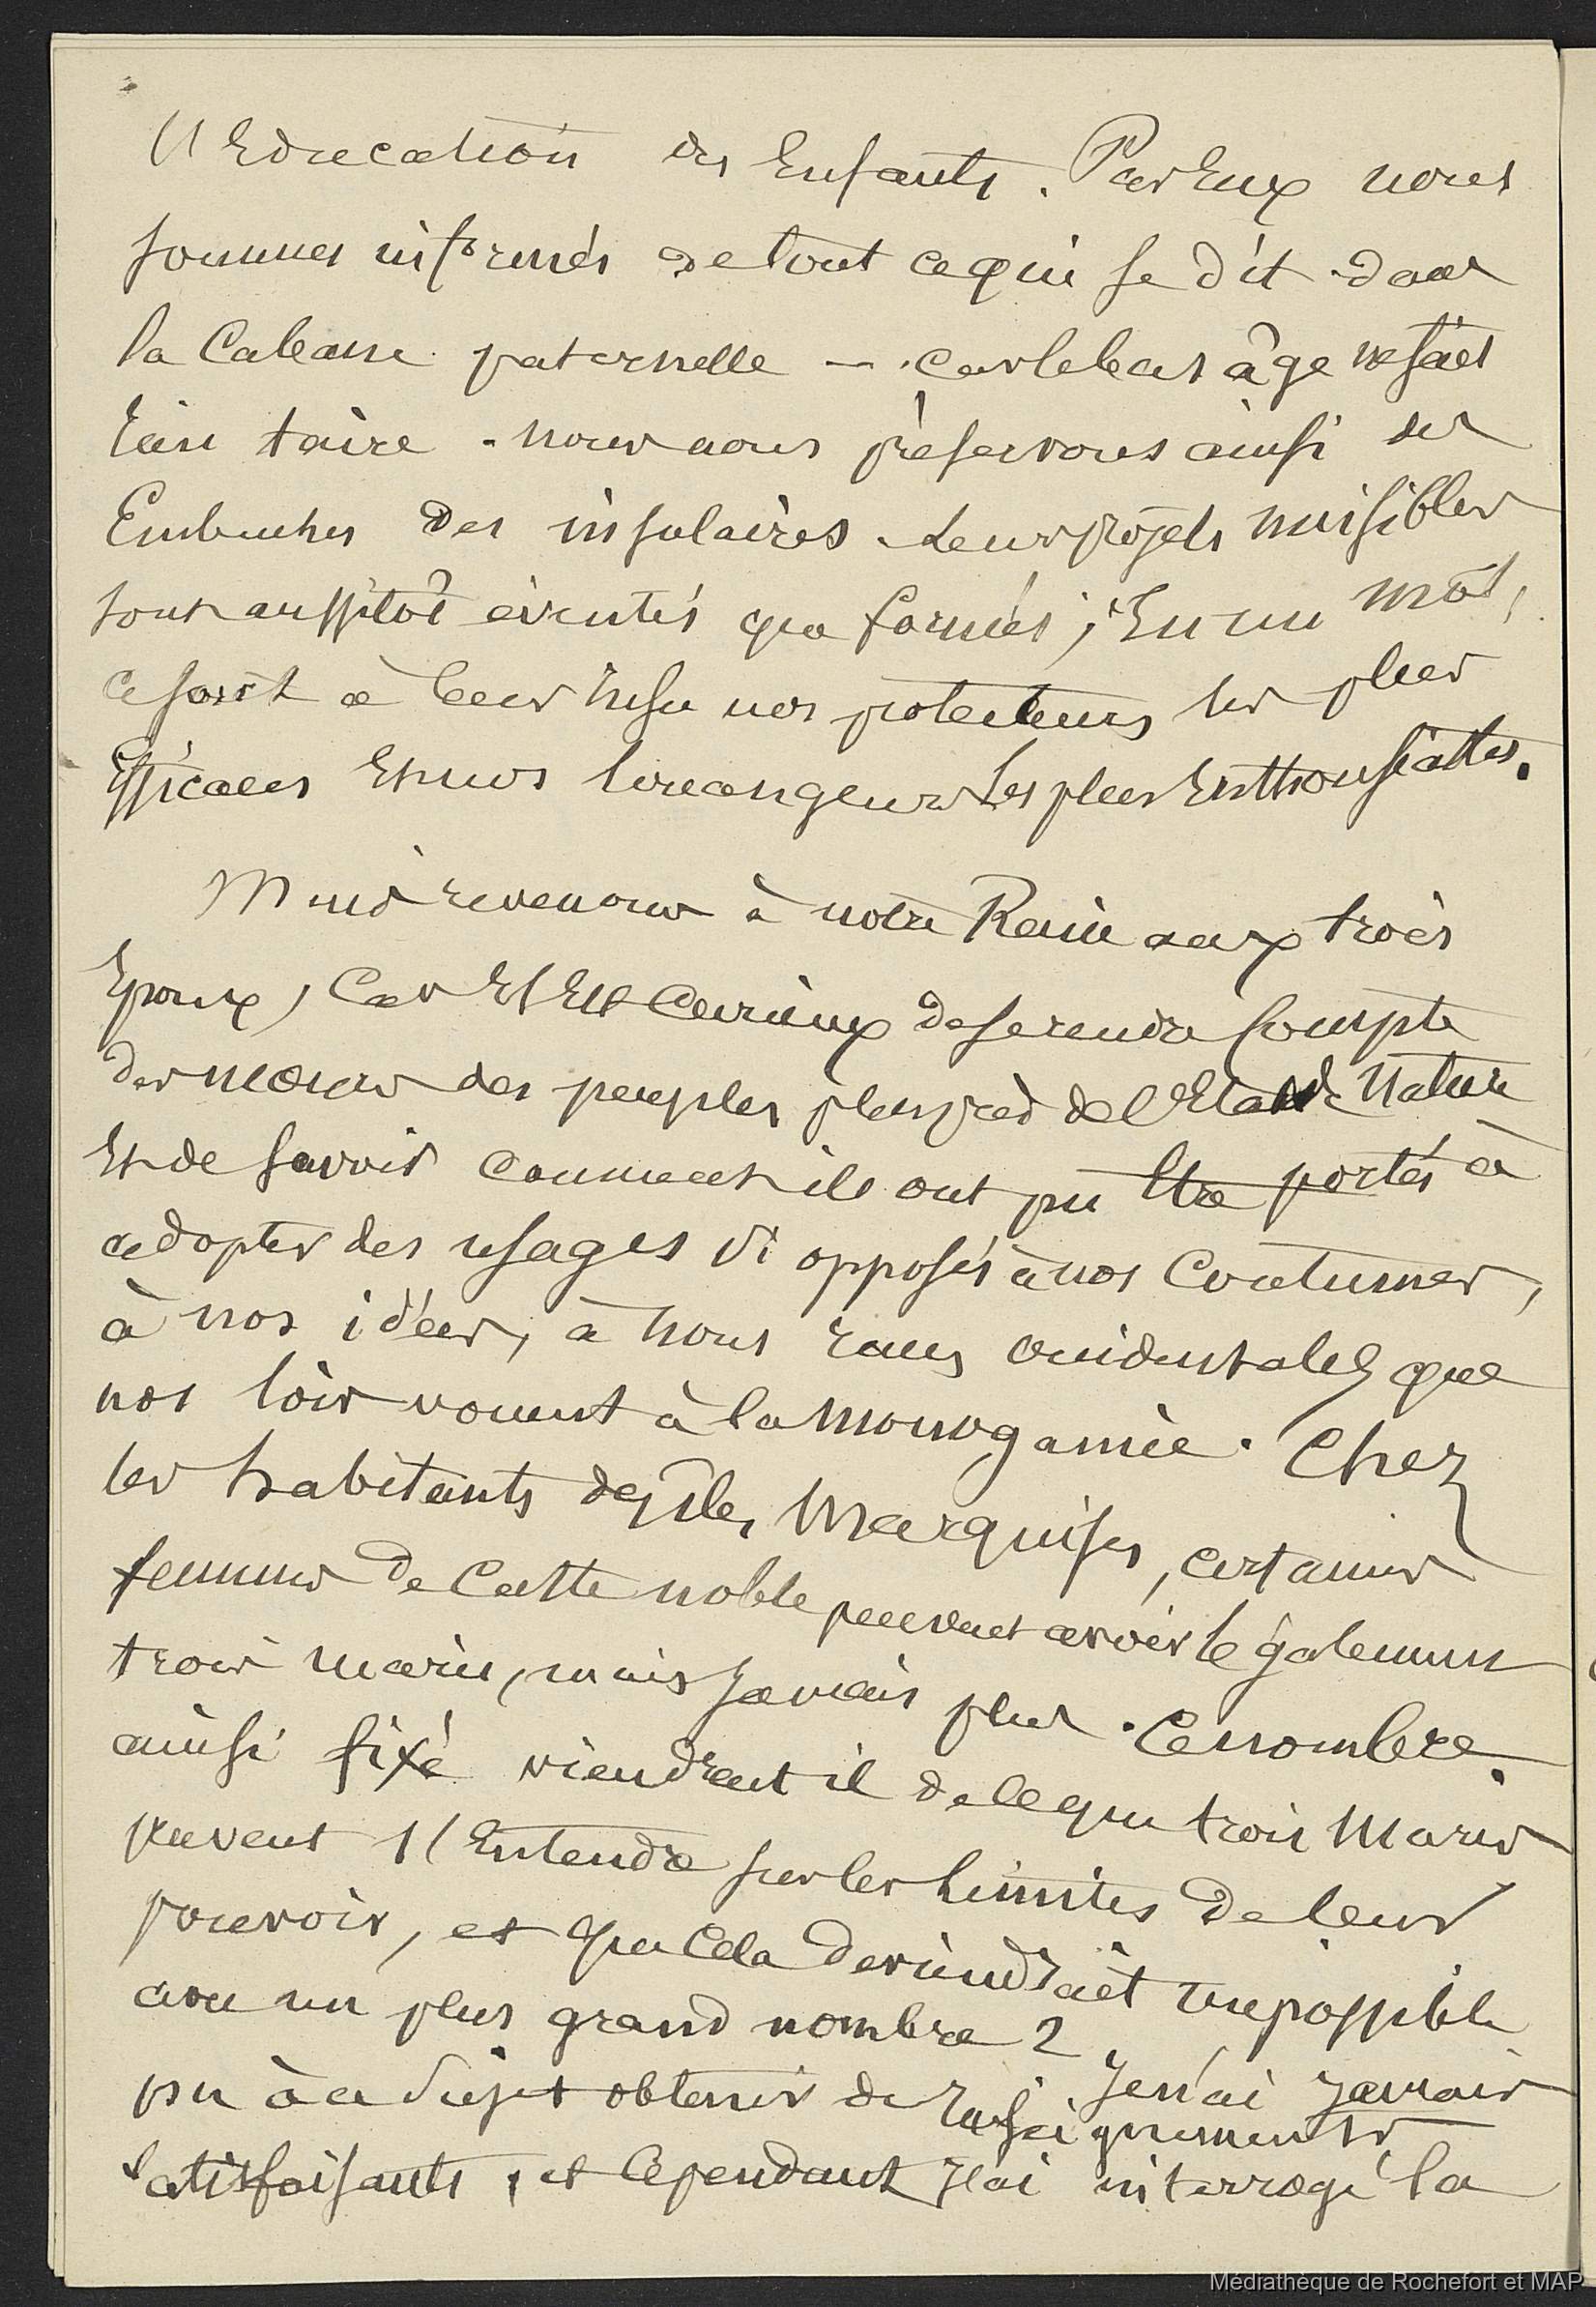 l'Education des Enfants. Par Eux nous
sommes informés de tout ce qui se dit dans
la Cabane paternelle — car le bas âge ne sait
rien taire. nous nous préservons ainsi des
Embuches des insulaires. Leurs projets nuisibles
sont aussitôt éventés que formés ; En un mot,
ce sont à leur insu nos protecteurs les plus
Efficaces Et nos louangeurs les plus Enthousiastes.
Mais revenons à notre Reine aux trois
Epoux, Car Il Est Curieux de se rendre Compte
des mœurs des peuples plus près de l'Etat de Nature
Et de savoir comment ils ont pu être portés à
adopter des usages si opposés à nos Coutumes,
à nos idées, à nous races occidentales que
nos lois vouent à la monogamie. Chez
les habitants des îles Marquises, certaines
femmes de Caste noble peuvent avoir légalement
trois maris, mais jamais plus. Ce nombre
ainsi fixé viendrait il de ce que trois Maris
peuvent s'Entendre sur les limites de leur
pouvoir, et que cela deviendrait impossible
avec un plus grand nombre ? Je n'ai jamais
pu à ce sujet obtenir de renseignements
satisfaisants, et cependant j'ai interrogé la
Médiathèque de Rochefort et MAP